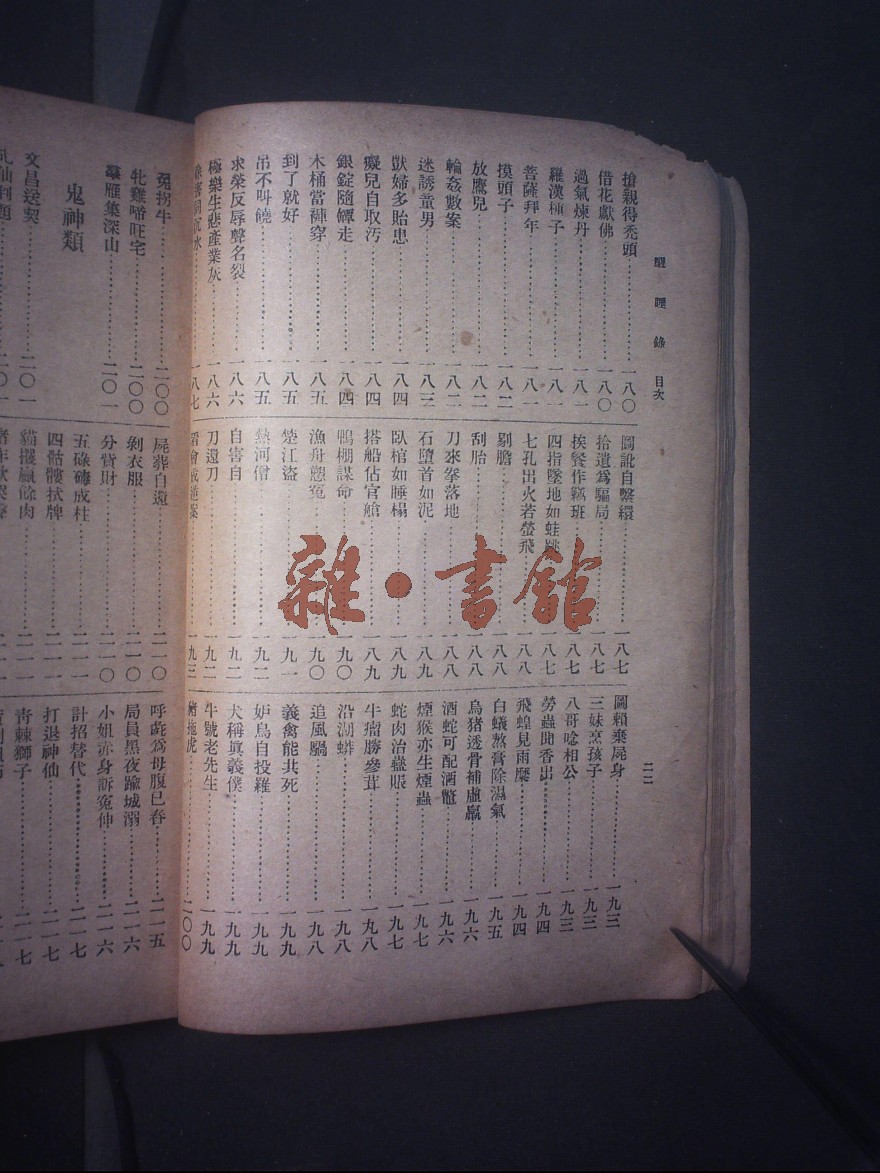 目次
搶親得禿頭……一八〇
借花獻佛……一八〇
過氣煉丹……一八一
羅漢種子……一八一
菩薩拜年……一八一
摸頭子……一八二
放鷹兒……一八二
輪姦數案……一八二
迷誘童男……一八三
獃婦多貽患……一八四
癡兒自取汚……一八四
銀錠隨轎走……一八四
木桶當褲穿……一八五
到了就好……一八五
吊不叫饒……一八五
求榮反辱聲名裂……一八六
極樂生悲產業灰……一八六
一八七
圖訛自繫繯……一八七
拾遺爲騙局……一八七
挨餐作竊班……一八七
四指墜地如蛙跳……一八七
七孔出火若螢飛……一八八
剔膽……一八八
刮胎……一八八
刀來拳落地……一八八
石墮首如泥……一八九
臥棺如睡榻……一八九
搭船佔官艙……一八九
鴨棚謀命……一九〇
漁舟懲寃……一九〇
楚江盜……一九一
熱河僧……一九二
自害自……一九二
刀還刀……一九二
一九三
圖賴棄屍身……一九三
三妹烹孩子……一九三
八哥唸相公……一九三
勞蟲聞香出……一九四
飛蝗見雨麋……一九四
白蟻熬膏除濕氣……一九五
烏猪透骨補虛羸……一九六
酒蛇可配酒鼈……一九六
煙猴亦生煙蟲……一九七
蛇肉治蠱脹……一九七
牛瘤勝參茸……一九八
沿湖蟒……一九八
追風騸……一九八
義禽能共死……一九九
妒鳥自投羅……一九九
犬稱眞義僕……一九九
牛號老先生……一九九
二〇〇
寃拐牛……二〇〇
牝雞啼旺宅……二〇〇
羣雁集深山……二〇一
鬼神類
文昌送契……二〇一
屍葬自還……二一〇
剝衣服……二一〇
分貲財……二一〇
五磚成柱……二一一
四骷髏拭牌……二一一
呼庇爲母腹已吞……二一五
局員黑夜踰城溺……二一六
小姐亦身訴寃伸……二一六
計招替代……二一七
打退神仙……二一七
靑棘獅子……二一七
雜·書館